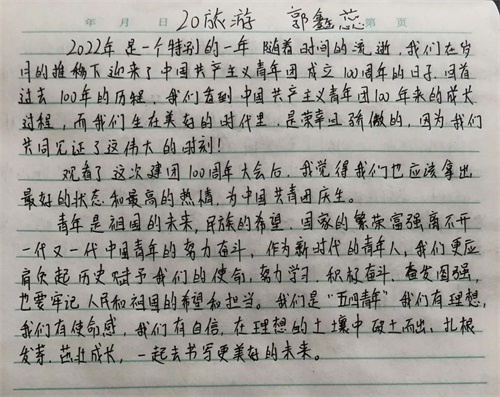 年 月 日 20旅游 郭鑫蕊 第 页
2022年是一个特别的一年 随着时间的流逝,我们在岁
月的推移下迎来了中国共产主义青年团成立100周年的日子.回首
过去100年的历程,我们看到中国共产主义青年团100年来的成长
过程,而我们生在美好的时代里,是荣幸且骄傲的,因为我们
共同见证了这伟大的时刻!
观看了这次建团100周年大会后,我觉得我们也应该拿出
最好的状态和最高的热情,为中国共青团庆生。
青年是祖国的未来,民族的希望.国家的繁荣富强离不开
一代又一代中国青年的努力奋斗,作为新时代的青年人,我们更应
肩负起历史赋予我们的使命,努力学习,积极奋斗,奋发图强,
也要牢记人民和祖国的希望和担当。我们是“五四青年”我们有理想,
我们有使命感,我们有自信,在理想的土壤中破土而出,扎根
发芽,茁壮成长,一起去书写更美好的未来。